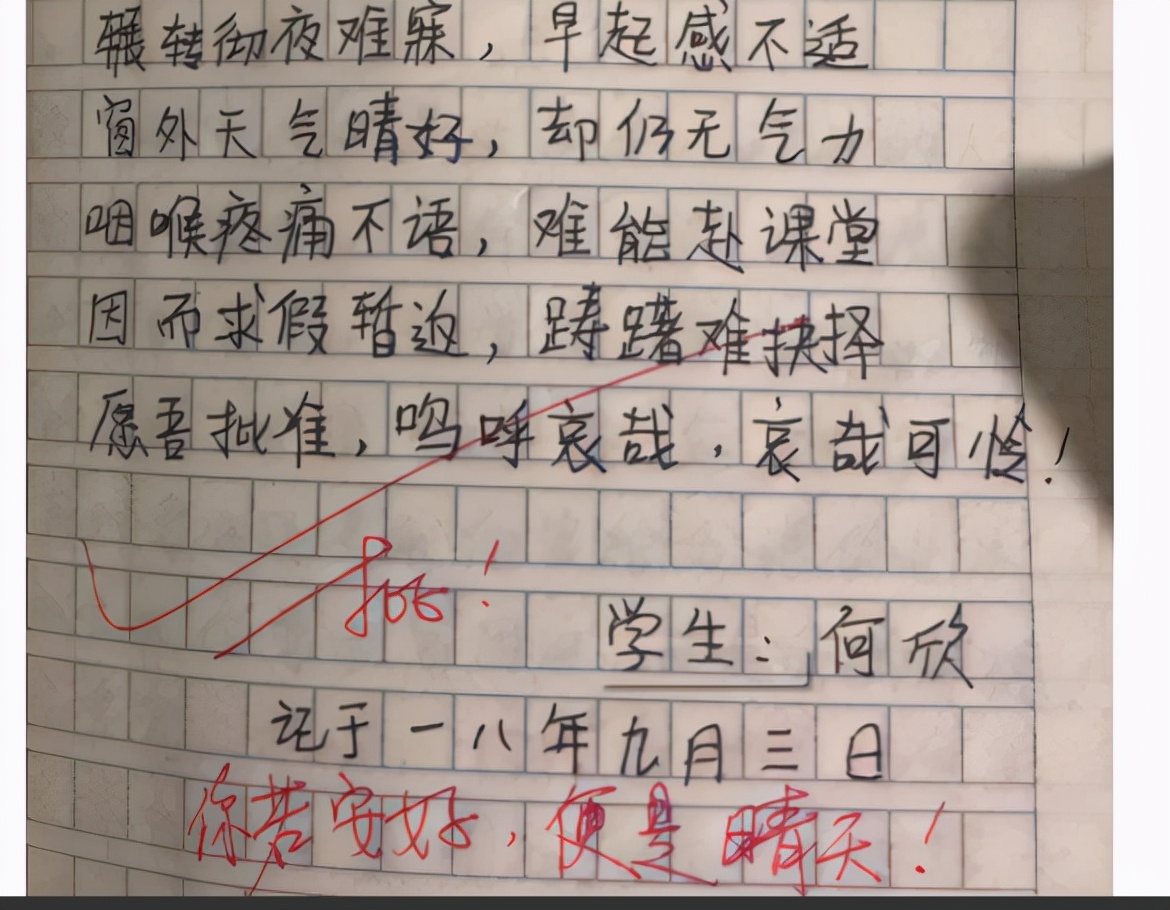 辗转彻夜难寐，早起感不适
窗外天气晴好，却仍无气力
咽喉疼痛不语，难能赴课堂
因而求假暂迫，踌躇难抉择
愿吾批准，呜呼哀哉，哀哉可怜！
批！
学生：何欣
记于一八年九月三日
你若安好，便是晴天！